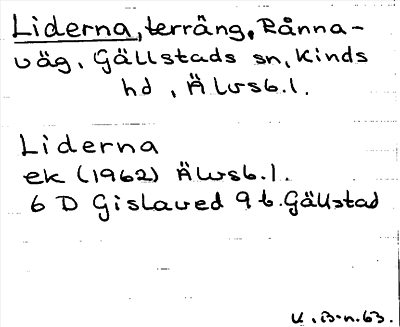 Liderna, terräng, Rånna-
väg, Gällstads sn, Kinds
hd, Älvsb.l.
Liderna
ek (1962) Älvsb.l.
6 D Gislaved 9 b. Gällstad
K.B-n.63.